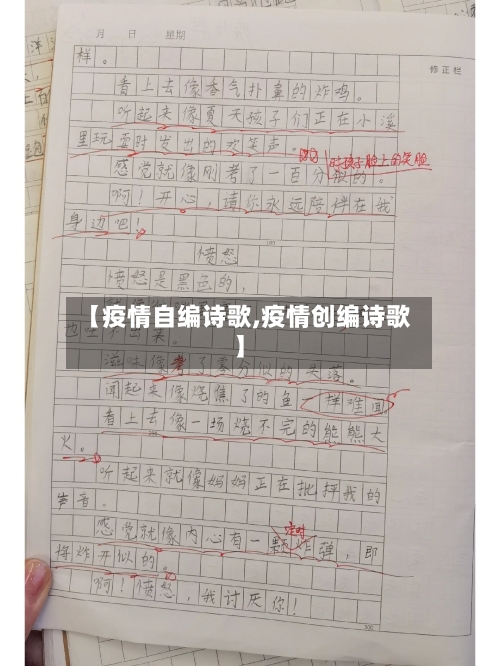 月 日 星期
修正栏
样。
看上去像香气扑鼻的炸鸡。
听起来像夏天孩子们正在小溪
里玩耍时发出的欢笑声。
时孩子脸上的笑脸
感觉就像刚考了一百分般的。
啊!开心,请你永远陪伴在我
身边吧!
100
愤怒
愤怒是黑色的,
【疫情自编诗歌,疫情创编诗歌
】
滋味像考了零分似的失落。
闻起来像烧焦了的鱼一样难闻
看上去像一场烧不完的熊熊大
火。
听起来就像妈妈正在批评我的
声音.
感觉就像内心有一颗炸弹,即
定时
将炸开似的。
啊!愤怒,我讨厌你!
300